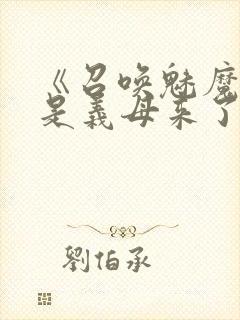 《召唤魅魔
是義母来了
劉伯承